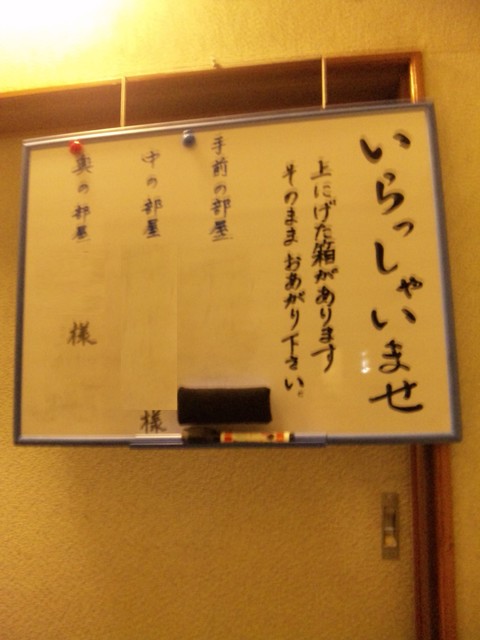 いらっしゃいませ
上にげた箱があります
そのままおあがり下さい。
手前の部屋
中の部屋
様
奥の部屋
様